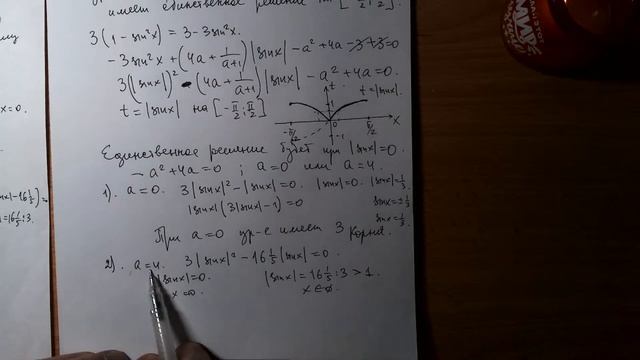 имеет единственное решение на [-π/2; π/2].
3(1 - sin²x) = 3 - 3sin²x.
-3sin²x + (4a + 1/(a+1))|sinx| - a² + 4a - 3 + 3 = 0
3(|sinx|)² - (4a + 1/(a+1))|sinx| - a² + 4a = 0.
t = |sinx| на [-π/2; π/2]
t
t = |sinx|.
1
-π/2
0
π/2
x
-1
Единственное решение будет при |sinx| = 0.
-a² + 4a = 0 ; a = 0 или a = 4.
1). a = 0. 3|sinx|² - |sinx| = 0. |sinx| = 0. |sinx| = 1/3
|sinx|(3|sinx| - 1) = 0
sinx = ±1/3
sinx = 1/3.
При a = 0 ур-е имеет 3 корня.
2). a = 4. 3|sinx|² - 16 1/5|sinx| = 0.
|sinx| = 0. |sinx| = 16 1/5 : 3 > 1.
x = 0. x ∈ ∅.
x = 0.
|sinx| - 16 1/5) =
= 16 1/5 : 3.